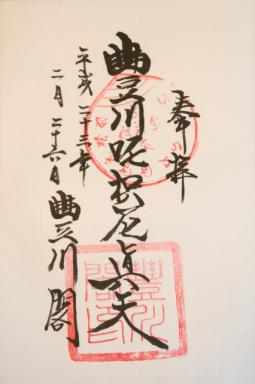 奉拝
豊川吒枳尼眞天
平成二十三年
二月二十六日 豊川閣
豊川閣印